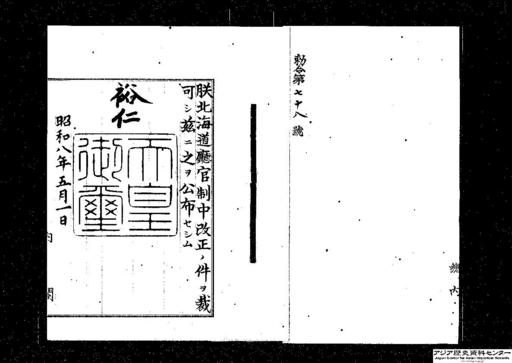 勅令第七十八號
朕北海道廳官制中改正ノ件ヲ裁
可シ玆ニ之ヲ公布セシム
裕仁
天皇
御璽
昭和八年五月一日
内閣
アジア歴史資料センター
Japan Center for Asian Historical Records